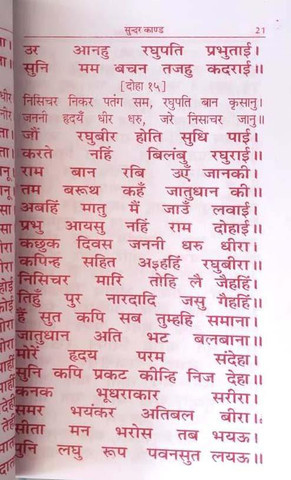 सुन्दर काण्ड 21
उर आनहु रघुपति प्रभुताई।
सुनि मम बचन तजहु कदराई॥
[दोहा १५]
निसिचर निकर पतंग सम, रघुपति बान कृसानु।
जननी हृदयँ धीर धरु, जरे निसाचर जानु॥
जौं रघुबीर होति सुधि पाई।
करते नहिं बिलंबु रघुराई॥
राम बान रबि उएँ जानकी।
तम बरूथ कहँ जातुधान की॥
अबहिं मातु मैं जाउँ लवाई।
प्रभु आयसु नहिं राम दोहाई॥
कछुक दिवस जननी धरु धीरा।
कपिन्ह सहित अइहहिं रघुबीरा॥
निसिचर मारि तोहि लै जैहहिं।
तिहुँ पुर नारदादि जसु गैहहिं॥
हैं सुत कपि सब तुम्हहि समाना।
जातुधान अति भट बलबाना॥
मोरें हृदय परम संदेहा।
सुनि कपि प्रकट कीन्हि निज देहा॥
कनक भूधराकार सरीरा।
समर भयंकर अतिबल बीरा॥
सीता मन भरोस तब भयऊ।
पुनि लघु रूप पवनसुत लयऊ॥